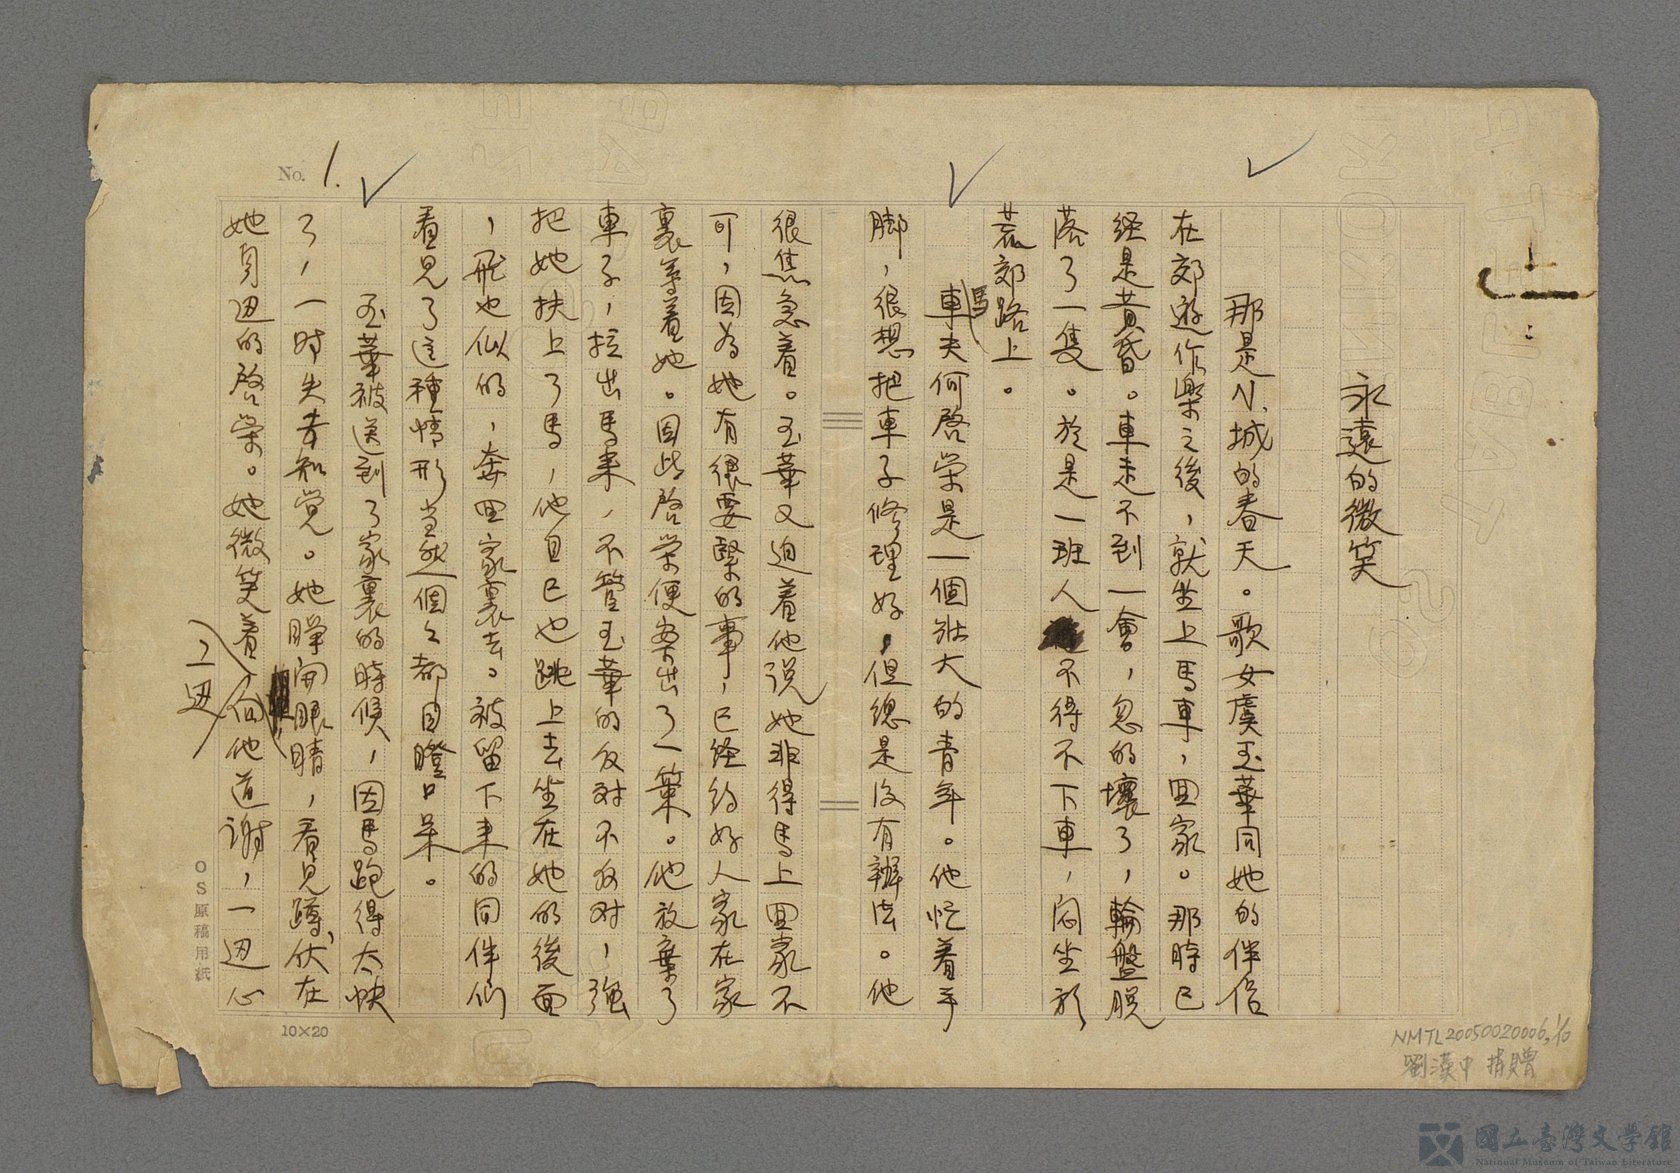 永遠的微笑
那是小城的春天。歌女虞玉華同她的伴侶
在郊遊作樂之後，就坐上馬車，回家。那時已
経是黃昏。車走不到一會，忽的壞了，輪盤脫
落了一隻。於是一班人不得不下車，悶坐於
荒郊路上。
馬車夫何啓榮是一個壯大的青年。他忙着手
脚，很想把車子修理好，但總是没有辦法。他
很焦急着。玉華又迫着他説她非得馬上回家不
可，因為她有很要緊的事，已経約好人家在家
裏等着她。因此啓榮便想出了一策。他放棄了
車子，拉出馬来，不管玉華的反対不反対，強
把她扶上了馬，他自己也跳上去坐在她的後面
，飛也似的，奔回家裏去。被留下来的同伴們
看見了這種情形当然個々都目瞪口呆。
玉華被送到了家裏的時候，因馬跑得太快
了，一時失去知覚。她睜開眼睛，看見蹲伏在
她身边的啓榮。她微笑着向他道謝，一边心
一边
No. 1.
OS原稿用紙
10×20
NMTL20050020006, 1/6
劉漢中 捐贈
國立臺灣文學館
National Museum of Taiwan Literature